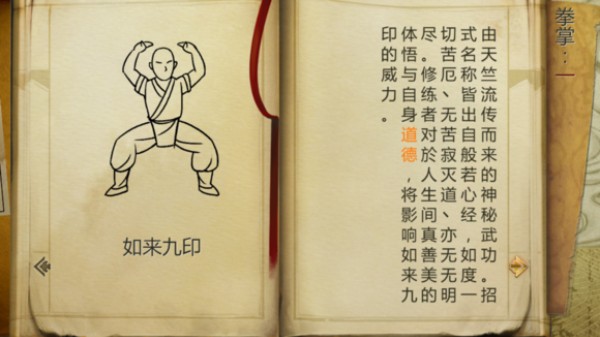 拳掌：一
由天竺流传而来的神秘武功。招
式名称皆出自般若心经，如度一
切苦厄、无苦寂灭道、亦无无明
尽。修练者对於人生间真善美的
体悟与自身道德，将影响如来九
印的威力。
如来九印